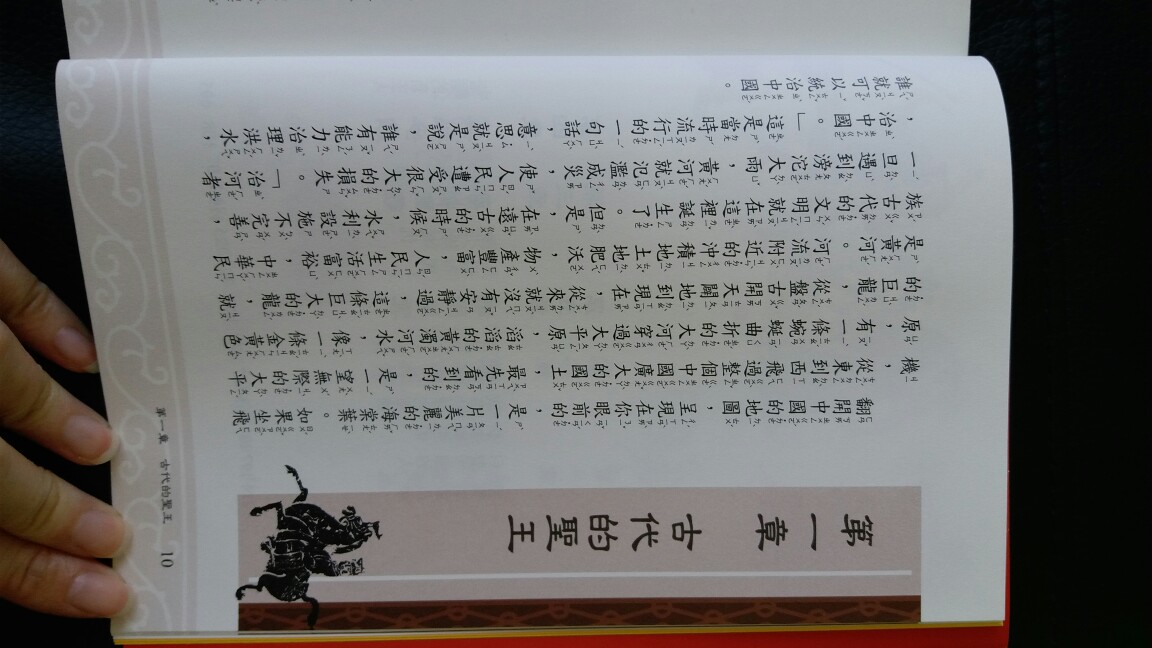 第一章 古代的聖王
翻開中國的地圖，呈現在你眼前的，是一片美麗的海棠葉。如果坐飛
機，從東到西飛過整個中國廣大的國土，最先看到的，是一望無際的大平
原，有一條蜿蜒曲折的大河穿過大平原，滔滔的黃濁河水，像一條金黃色
的巨龍，從盤古開天闢地到現在，從來就沒有安靜過，這條巨大的龍，就
是黃河。河流附近的沖積地土地肥沃，物產豐富，人民生活富裕，中華民
族古代的文明就在這裡誕生了。但是，在遠古的時候，水利設施不完善，
一旦遇到滂沱大雨，黃河就氾濫成災，使人民遭受很大的損失。「治河者
，治中國。」這是當時流行的一句話，意思就是說，誰有能力治理洪水，
誰就可以統治中國。
第一章 古代的聖王 10